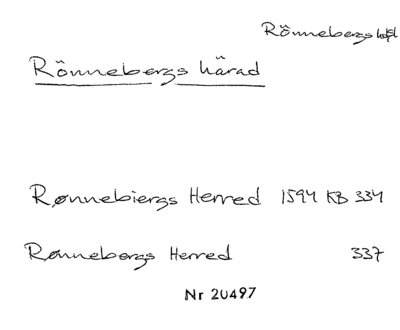 Rönnebergs hd
Rönnebergs härad
Rønnebiergs Herred 1594 KB 334
Rønnebergs Herred 337
Nr 20497